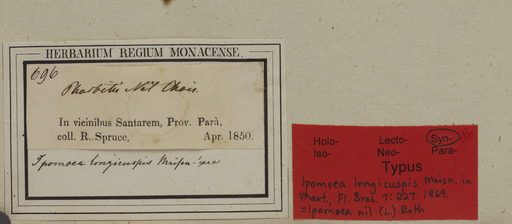 HERBARIUM REGIUM MONACENSE.
696
Pharbitis Nil Chois.
In vicinibus Santarem, Prov. Parà,
coll. R. Spruce, Apr. 1850.
Ipomoea longicuspis Meisn.
Holo- Lecto- Syn-
Iso- Neo- Para-
Typus
Ipomoea longicuspis Meisn. in
Mart., Fl. Bras. 7: 227. 1869.
=Ipomoea nil (L) Roth